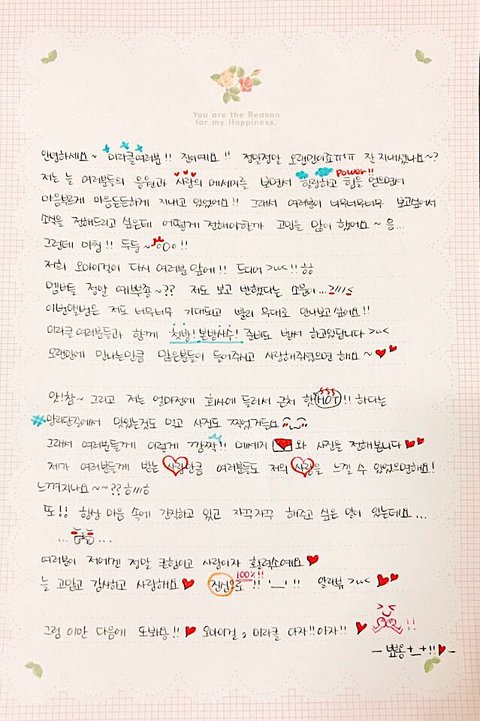 You are the Reason
for my Happiness.
안녕하세요~ 미라클여러분!! 진이에요!! 정말정말 오랜만이죠ㅠㅠ 잘 지내셨나요~?
저는 늘 여러분들의 응원과 사랑의 메세지를 보면서 힐링하고 힘을 얻으면서
Power!!
마음분게 마음든든하게 지내고 있었어요!! 그래서 여러분이 너무너무너무 보고싶어서
소식을 전해드리고 싶은데 어떻게 전해야할까 고민을 많이 했어요~ 음...
그런데 마침!! 두둥~ !!
저희 오마이걸이 다시 여러분 앞에!! 드디어 >_<!! ㅎㅎ
멤버들 정말 예쁘죠~?? 저도 보고 반했다는 소문이...
이번앨범은 저도 너무너무 기대되고 빨리 무대로 만나보고 싶어요!!
미라클 여러분들과 함께 첫방! 본방사수! 준비도 벌써 하고있답니다 >_<
오랜만에 만나는만큼 많은분들이 들어주고 사랑해주셨으면 해요~
앗!참~ 그리고 저는 얼마전에 회사에 들러서 근처 핫HOT!! 하다는
#망리단길에서 맛있는것도 먹고 사진도 찍었거든요
그래서 여러분들께 이렇게 깜짝!! 메세지와 사진을 전해봅니다
제가 여러분들께 받는 사랑만큼 여러분들도 저의 사랑을 느낄 수 있었으면해요!
느껴지나요~~??
또!! 항상 마음 속에 간직하고 있고 자꾸자꾸 해주고 싶은 말이 있는데요...
... ...
여러분이 저에겐 정말 큰힘이고 사랑이자 활력소예요
늘 고맙고 감사하고 사랑해요 진심도 100%!! !! '_'!! 알라뷰 >_<
그럼 이만 다음에 또봐용!! 오마이걸, 미라클 아자!!아자!! !!
- 뿅용 +_+!! -